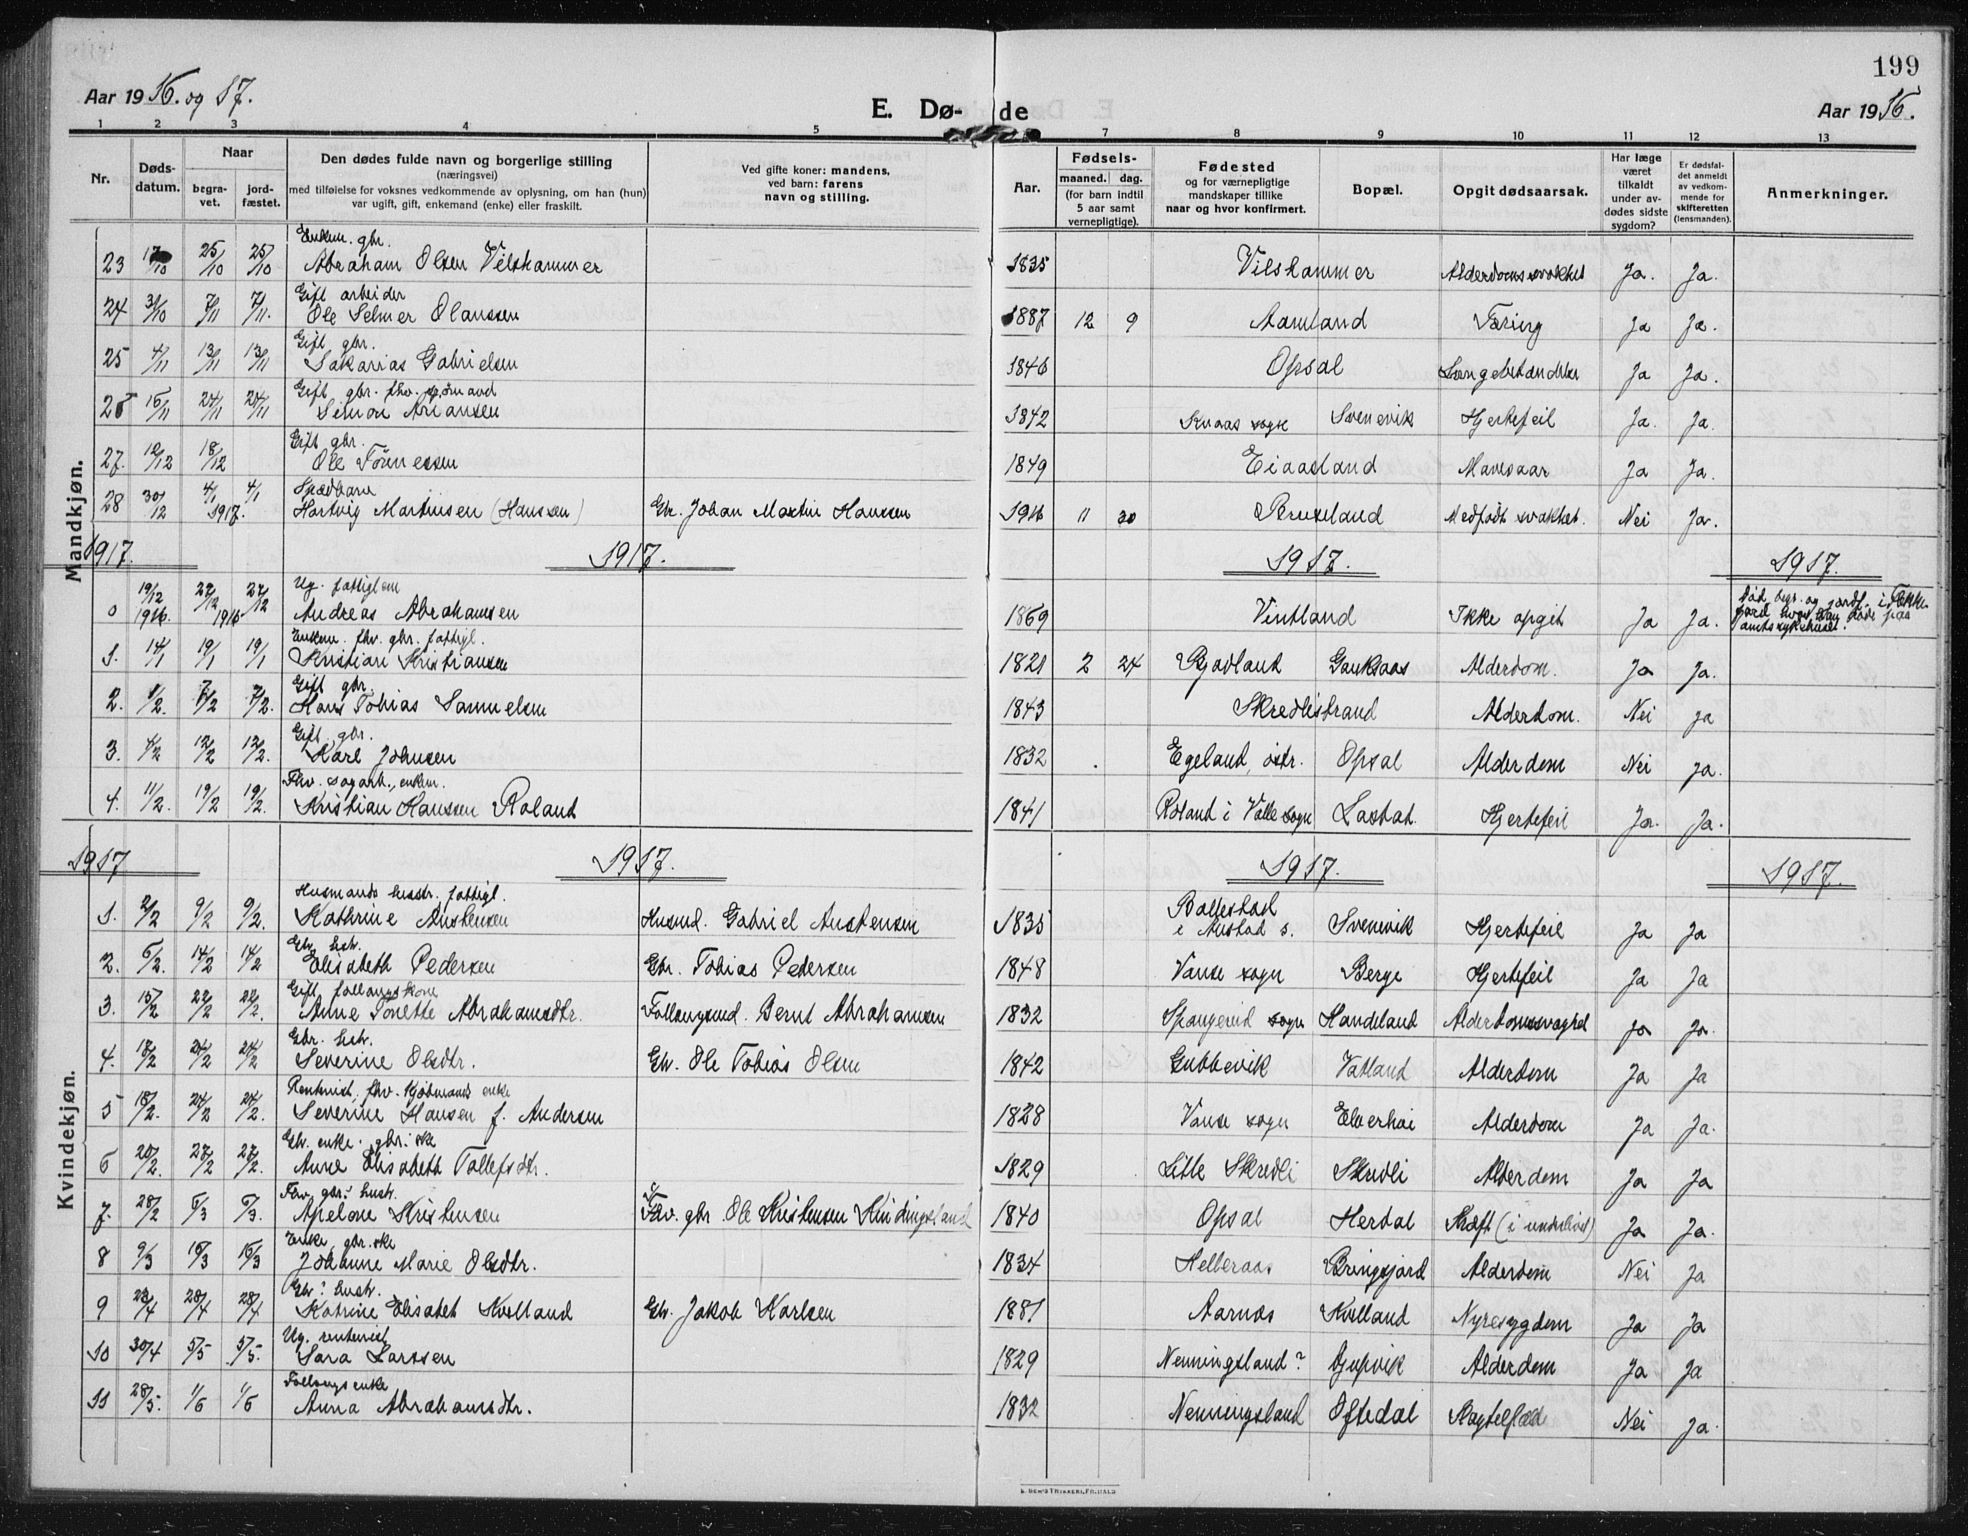 199
Aar 1916. og 17.
E. Dø- de
Aar 1916.
1 2 3 4 5 7 8 9 10 11 12 13
Nr.
Døds-
datum.
Naar
begra-
vet.
jord-
fæstet.
Den dødes fulde navn og borgerlige stilling
(næringsvei)
med tilføielse for voksnes vedkommende av oplysning, om han (hun)
var ugift, gift, enkemand (enke) eller fraskilt.
Ved gifte koner: mandens,
ved barn: farens
navn og stilling.
Aar.
Fødsels-
maaned. dag.
(for barn indtil
5 aar samt
vernepligtige).
Fødested
og for værnepligtige
mandskaper tillike
naar og hvor konfirmert.
Bopæl.
Opgit dødsaarsak.
Har læge
været
tilkaldt
under av-
dødes sidste
sygdom?
Er dødsfal-
det anmeldt
av vedkom-
mende for
skifteretten
(lensmanden).
Anmerkninger.
Mandkjøn.
Enkem. gbr.
23 17/10 25/10 25/10 Abraham Olsen Vilshammer 1835 Vilshammer Alderdomssvakhet Ja. Ja.
Gift arbeider
24 31/10 7/11 7/11. Ole Selmer Olanssen 1887 12 9 Aamland Tæring Ja Ja.
Gift gbr.
25 4/11 13/11 13/11 Sakarias Gabrielsen 1846 Opsal Lungebetændelse Ja Ja.
Gift gbr. fhv.
26 16/11 24/11 24/11 Simon Ariansen 1842 Kvaas sogn Svenevik Hjertefeil Ja. Ja.
Gift gbr.
27. 12/12 18/12 Ole Tønnessen 1849 Eiaasland Mavesaar Ja Ja.
Spædbarn
28 30/12 4/1 1917. 4/1 Hartvig Martinsen (Hanssen) Gbr. Johan Martin Hanssen 1916 11 30 Bruseland Medfødt svakhet. Nei Ja.
1917. 1917. 1917. 1917.
Ug. fattiglem
0 19/12 1916. 27/12 1916 27/12 Andreas Abrahamsen 1869 Vintland Ikke opgit Ja Ja. Død, begr. og jordf. i
amtssykehuset.
Enkem. fhv. gbr. fattigl.
1. 14/1 19/1 19/1 Kristian Kristiansen 1821 2 24 Gjodland Gauksaas Alderdom. Ja Ja.
Gift gbr.
2. 1/2. 7/2 7/2. Hans Tobias Samuelsen 1843 Skredlistrand Alderdom. Nei ja
Gift gbr.
3. 4/2 12/2 12/2. Karl Johnsen 1832 Egeland, østr. Opsal Alderdom Nei ja.
Fhv. sagarb., enkem.
4. 11/2. 19/2 19/2. Kristian Hanssen Roland 1841 Roland i Valle sogn Lastad. Hjertefeil Ja. Ja.
1917 1917. 1917. 1917.
Kvindekjøn.
Husmands hustr. fattigl.
1. 2/2 9/2 9/2. Kathrine Austensen Husmd. Gabriel Austensen 1835 Ballestad i Austad s. Svenevik Hjertefeil Ja Ja
Gbr. hstr.
2. 6/2. 14/2 14/2 Elisabeth Pedersen Gbr. Tobias Pedersen 1848 Vanse sogn Berge Hjertefeil Ja Ja
Gift follaugskone
3. 15/2 22/2 22/2. Anne Tonette Abrahamsdtr. Follaugsmd. Bernt Abrahamsen 1832 Spangereid sogn Handeland Alderdomssvaghed ja Ja.
Gbr. hstr.
4. 18/2 24/2 24/2 Severine Olsdtr. Gbr. Ole Tobias Olsen 1842 Gubbevik Vatland Alderdom Ja Ja
Rentenist, fhv. Kjøbmands enke
5 18/2. 24/2 24/2. Severine Hansen f. Andersen 1828 Vanse sogn Elverhøi Alderdom Ja Ja.
Gbr. enke. gbr:ske
6 20/2. 27/2 27/2. Anne Elisabeth Tollefsdtr. 1829 Litle Skredli Skredli Alderdom Ja Ja
Fhv. gbr: hustr.
7. 28/2 6/3 6/3. Apelone Kristensen Fhv. gbr. Ole Kristensen Kindingsland 1840 Opsal Herdal Kræft (i underlivet) Ja Ja.
Enke, gbr.ske
8 9/3 16/3 16/3 Johanne Marie Olsdtr. 1834 Helleraas Bringsjord Alderdom Nei Ja
Gbr: hustr.
9 23/4 28/4 28/4 Katrine Elisabet Kvelland Gbr. Jakob Karlsen 1881 Aarnes Kvelland Nyresygdom Ja Ja
Ug. rentenist
10 30/4 5/5 5/5. Sara Larssen 1829 Nenningsland? Gjupvik Alderdom Ja Ja
Follaugs enke
11 28/5. 1/6 1/6 Anna Abrahamsdtr. 1832 Nenningsland Oftedal Nei Ja.